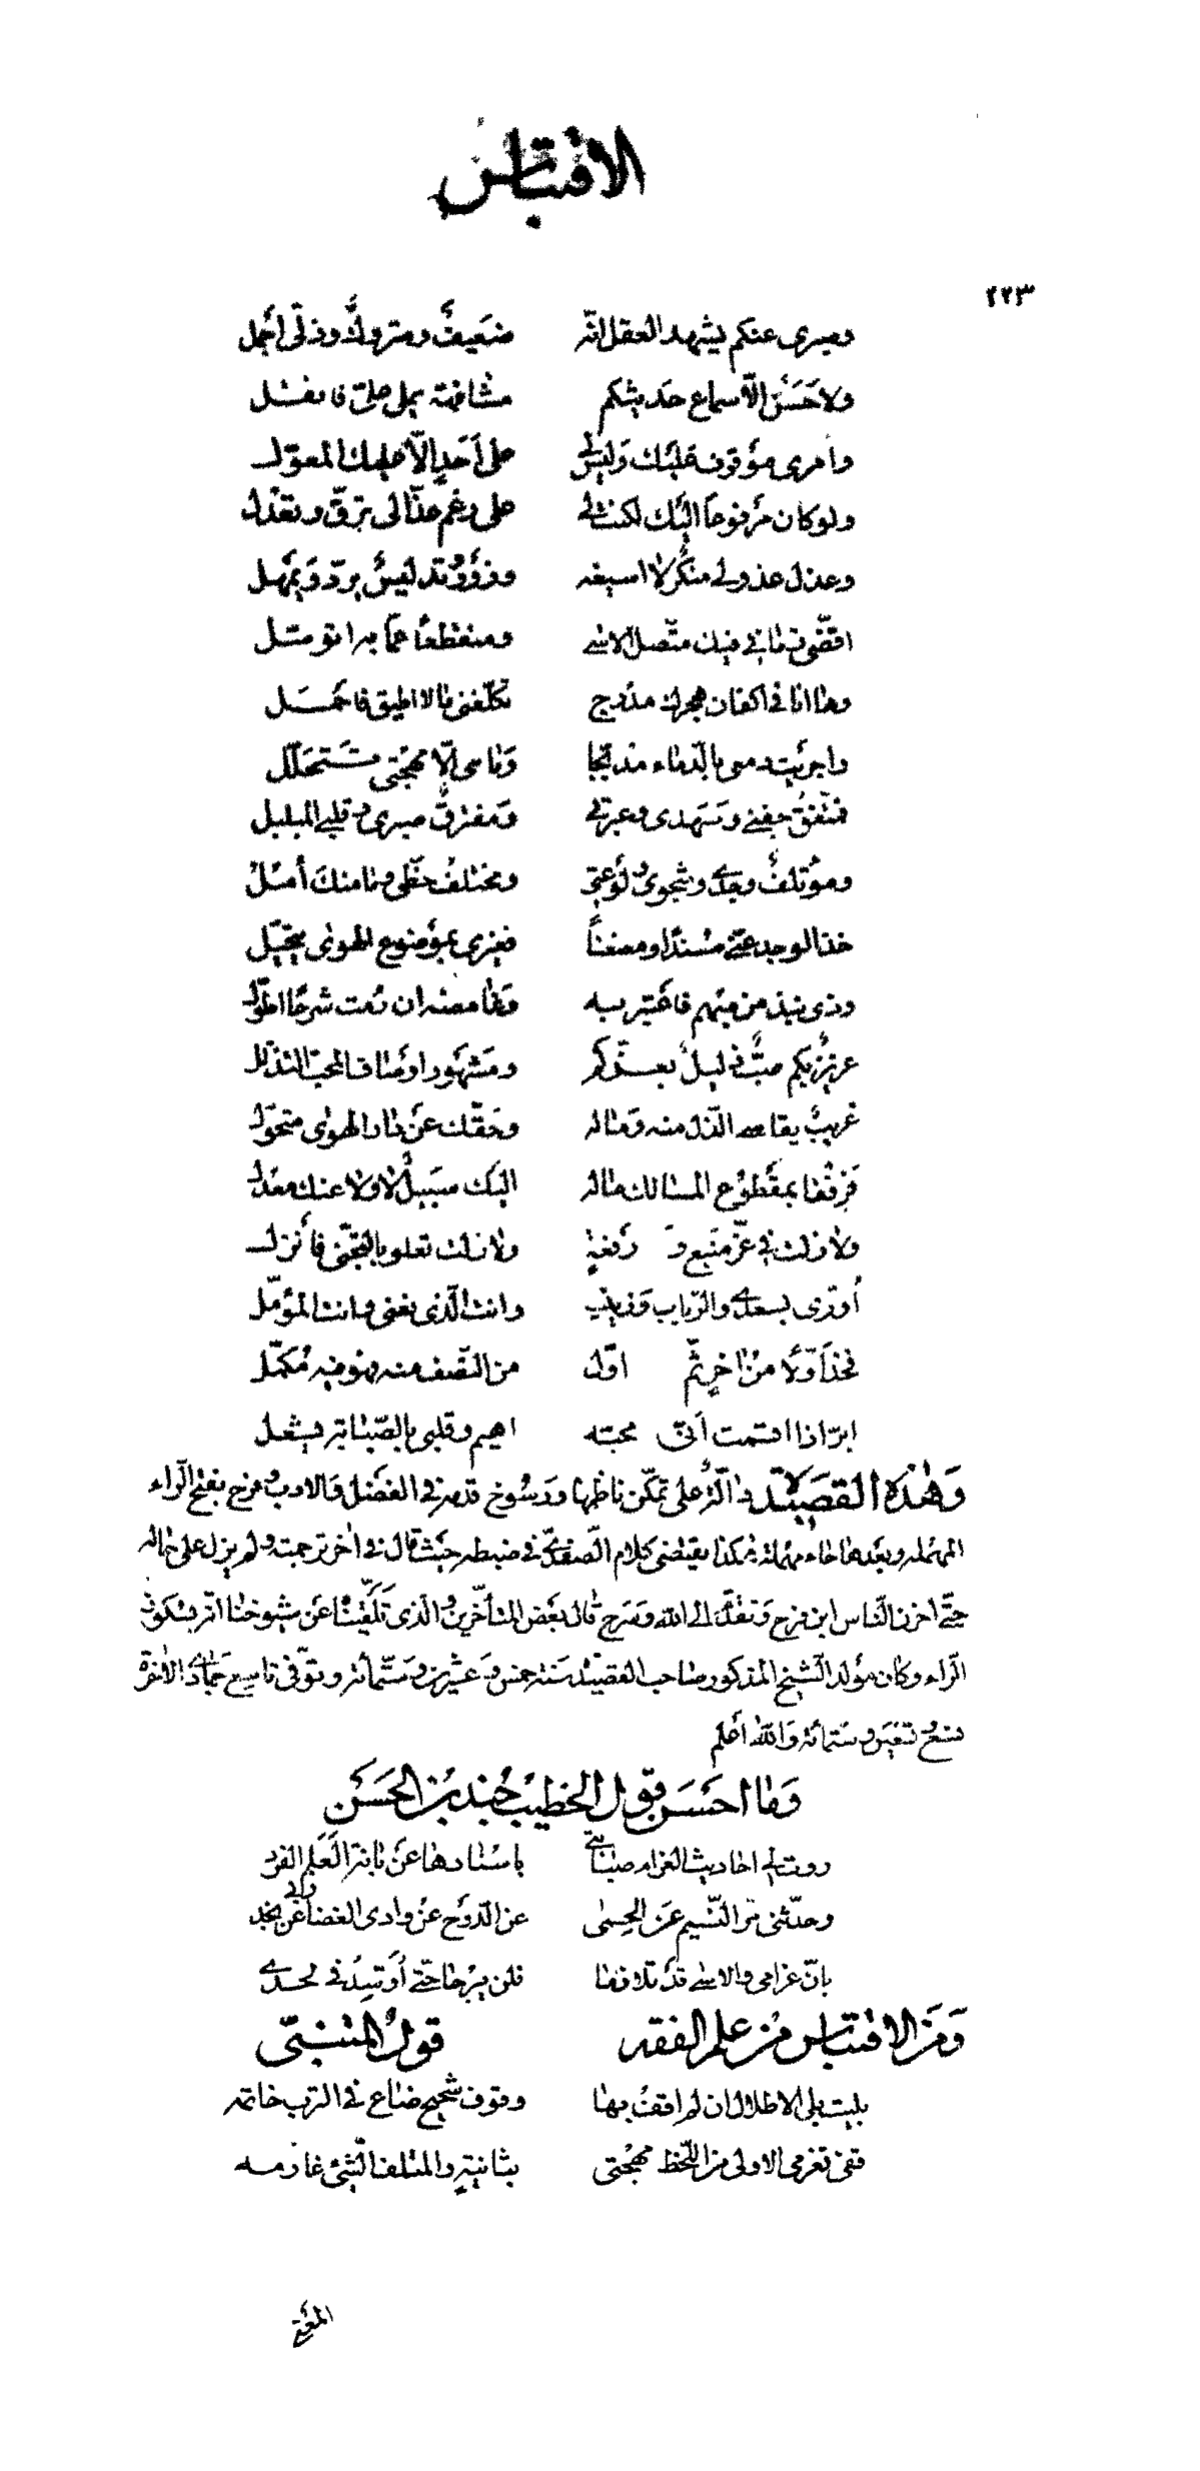 الاقتباس
٢٢٣
وصبرى عنكم يشهد العقل انّه ضَعيفٌ ومتروكٌ وذلّى اجمل
ولا حَسَنٌ الّا سماع حَديثكم مشافهة يملى علىّ فانقل
وامرى موقوف عَليْك وَليسَ لى على اَحَدٍ الّا عليك المعوّل
ولو كان مرفوعاً اليْك لكنت لى على رغم عذّالى ترقّ وتعدل
وعذل عذولى منكرٌ لا اسيغه وزورٌ وتدليسٌ يردّ ويهمل
اقضّى زمانى فيك متّصل الاسى ومنقطعا عمّا به اتوصّل
وها انا فى اكفان هجرك مدرج تكلّفنى ما لا اطيق فاحمل
واجريت دمعى بالدّماء مدبّجا وَما هى الّا مهجتى تتحلّل
فمتّفقٌ جفنى وسَهدى وعبرتى وَمفترقٌ صبرى وقلبى المبلبل
وموتلفٌ وجدى وشجوى ولوعتى ومختلف حظّى وما منك آمل
خذ الوجد عنّى مسنداً ومعنعناً فغيرى بموضوع الهوى يتحيّل
وذى نبذ من مبهم فاعتبر به وَغامضه ان رمت شرحًا اطوّل
عزيز بكم صبٌّ ذليل بعزّكم ومَشهور اوصاف المحبّ التذلّل
غريبٌ يقاسى الذل منه وَماله وحَقّك عَن دار الهوى متحوّل
فرفقا بمقطوع المسالك ماله اليك سَبيلٌ لا ولا عنك معدل
ولا زلت فى عزّ منيع وَ رفعةٍ ولا زلت تعلو بالتجنّى فأنزل
اُورّى بسعدى والرّباب وَزينب وانت الّذى يعنى وانت المؤمّل
فخذ اَوّلا من اخرٍ ثمّ اوّل من النّصف منه فهو فيه مُكمّل
ابرّ اذا اقسمت اَنّى محبّه اهيم وقلبى بالصّبابة يشعل
وَهٰذه القصَيدة دالّة على تمكّن ناظمها ورسُوخ قدمه فى الفضل وَالادب وفرح بفتح الرّاء
المهمله وبَعدها حاء مهملة هكذا يقتضى كلام الصّفدىّ فى ضبطه حيث قال فى اخر ترجمته ولم يزل على حاله
حتّى احزن النّاس ابن فرح وَتقدّم الى اللّه وَسَرح قال بعَض المتأخّرين والّذى تلقّيناه عَن شيوخنا انّه بسكون
الرّاء وكان مولد الشّيخ المذكور صاحب القصيدة سَنة خمس وَعشرين وَستّمائة وتوفّى تاسع جمادى الاخرة
سنة تسع وتسعين وستمائة وَاللّه اعلم
وَما احسَن قول الخطيب حميد بن الحسَن
روت لى احاديث الغرام صبابتى باسنادها عَن بانة العَلم الفرد
وحدّثنى مرّ النّسيم عَن الحِمٰى عن الدّوح عن وادى الغضا عن ربى نجد
بانّ غرامى والاسى قد تلازما فلن يبرحا حتّى اُوَسَّد فى لحدى
وَمن الاقتباس من علم الفقه قول المتنبّى
بليت بلى الاطلال ان لم اقف بها وقوف شحيح ضاع فى الترب خاتمه
قفى تغرمى الاولى من اللّحظ مهجتى بثانيةٍ والمتلف الشّئ غارمه